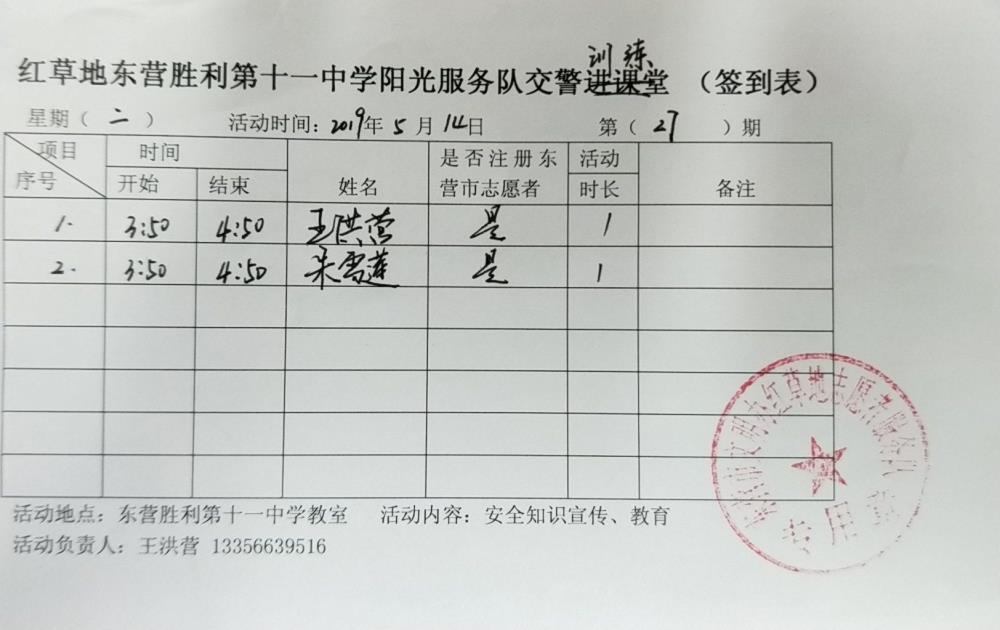 训练
红草地东营胜利第十一中学阳光服务队交警进课堂 （签到表）
星期（ 二 ） 活动时间：2019年 5 月 14日 第（ 27 ）期
项目 时间 是否注册东 活动
序号 开始 结束 姓名 营市志愿者 时长 备注
1. 3:50 4:50 王洪营 是 1
2. 3:50 4:50 朱雪莲 是 1
活动地点：东营胜利第十一中学教室 活动内容：安全知识宣传、教育
活动负责人：王洪营 13356639516
文明办红草地志愿者服务队
专用章